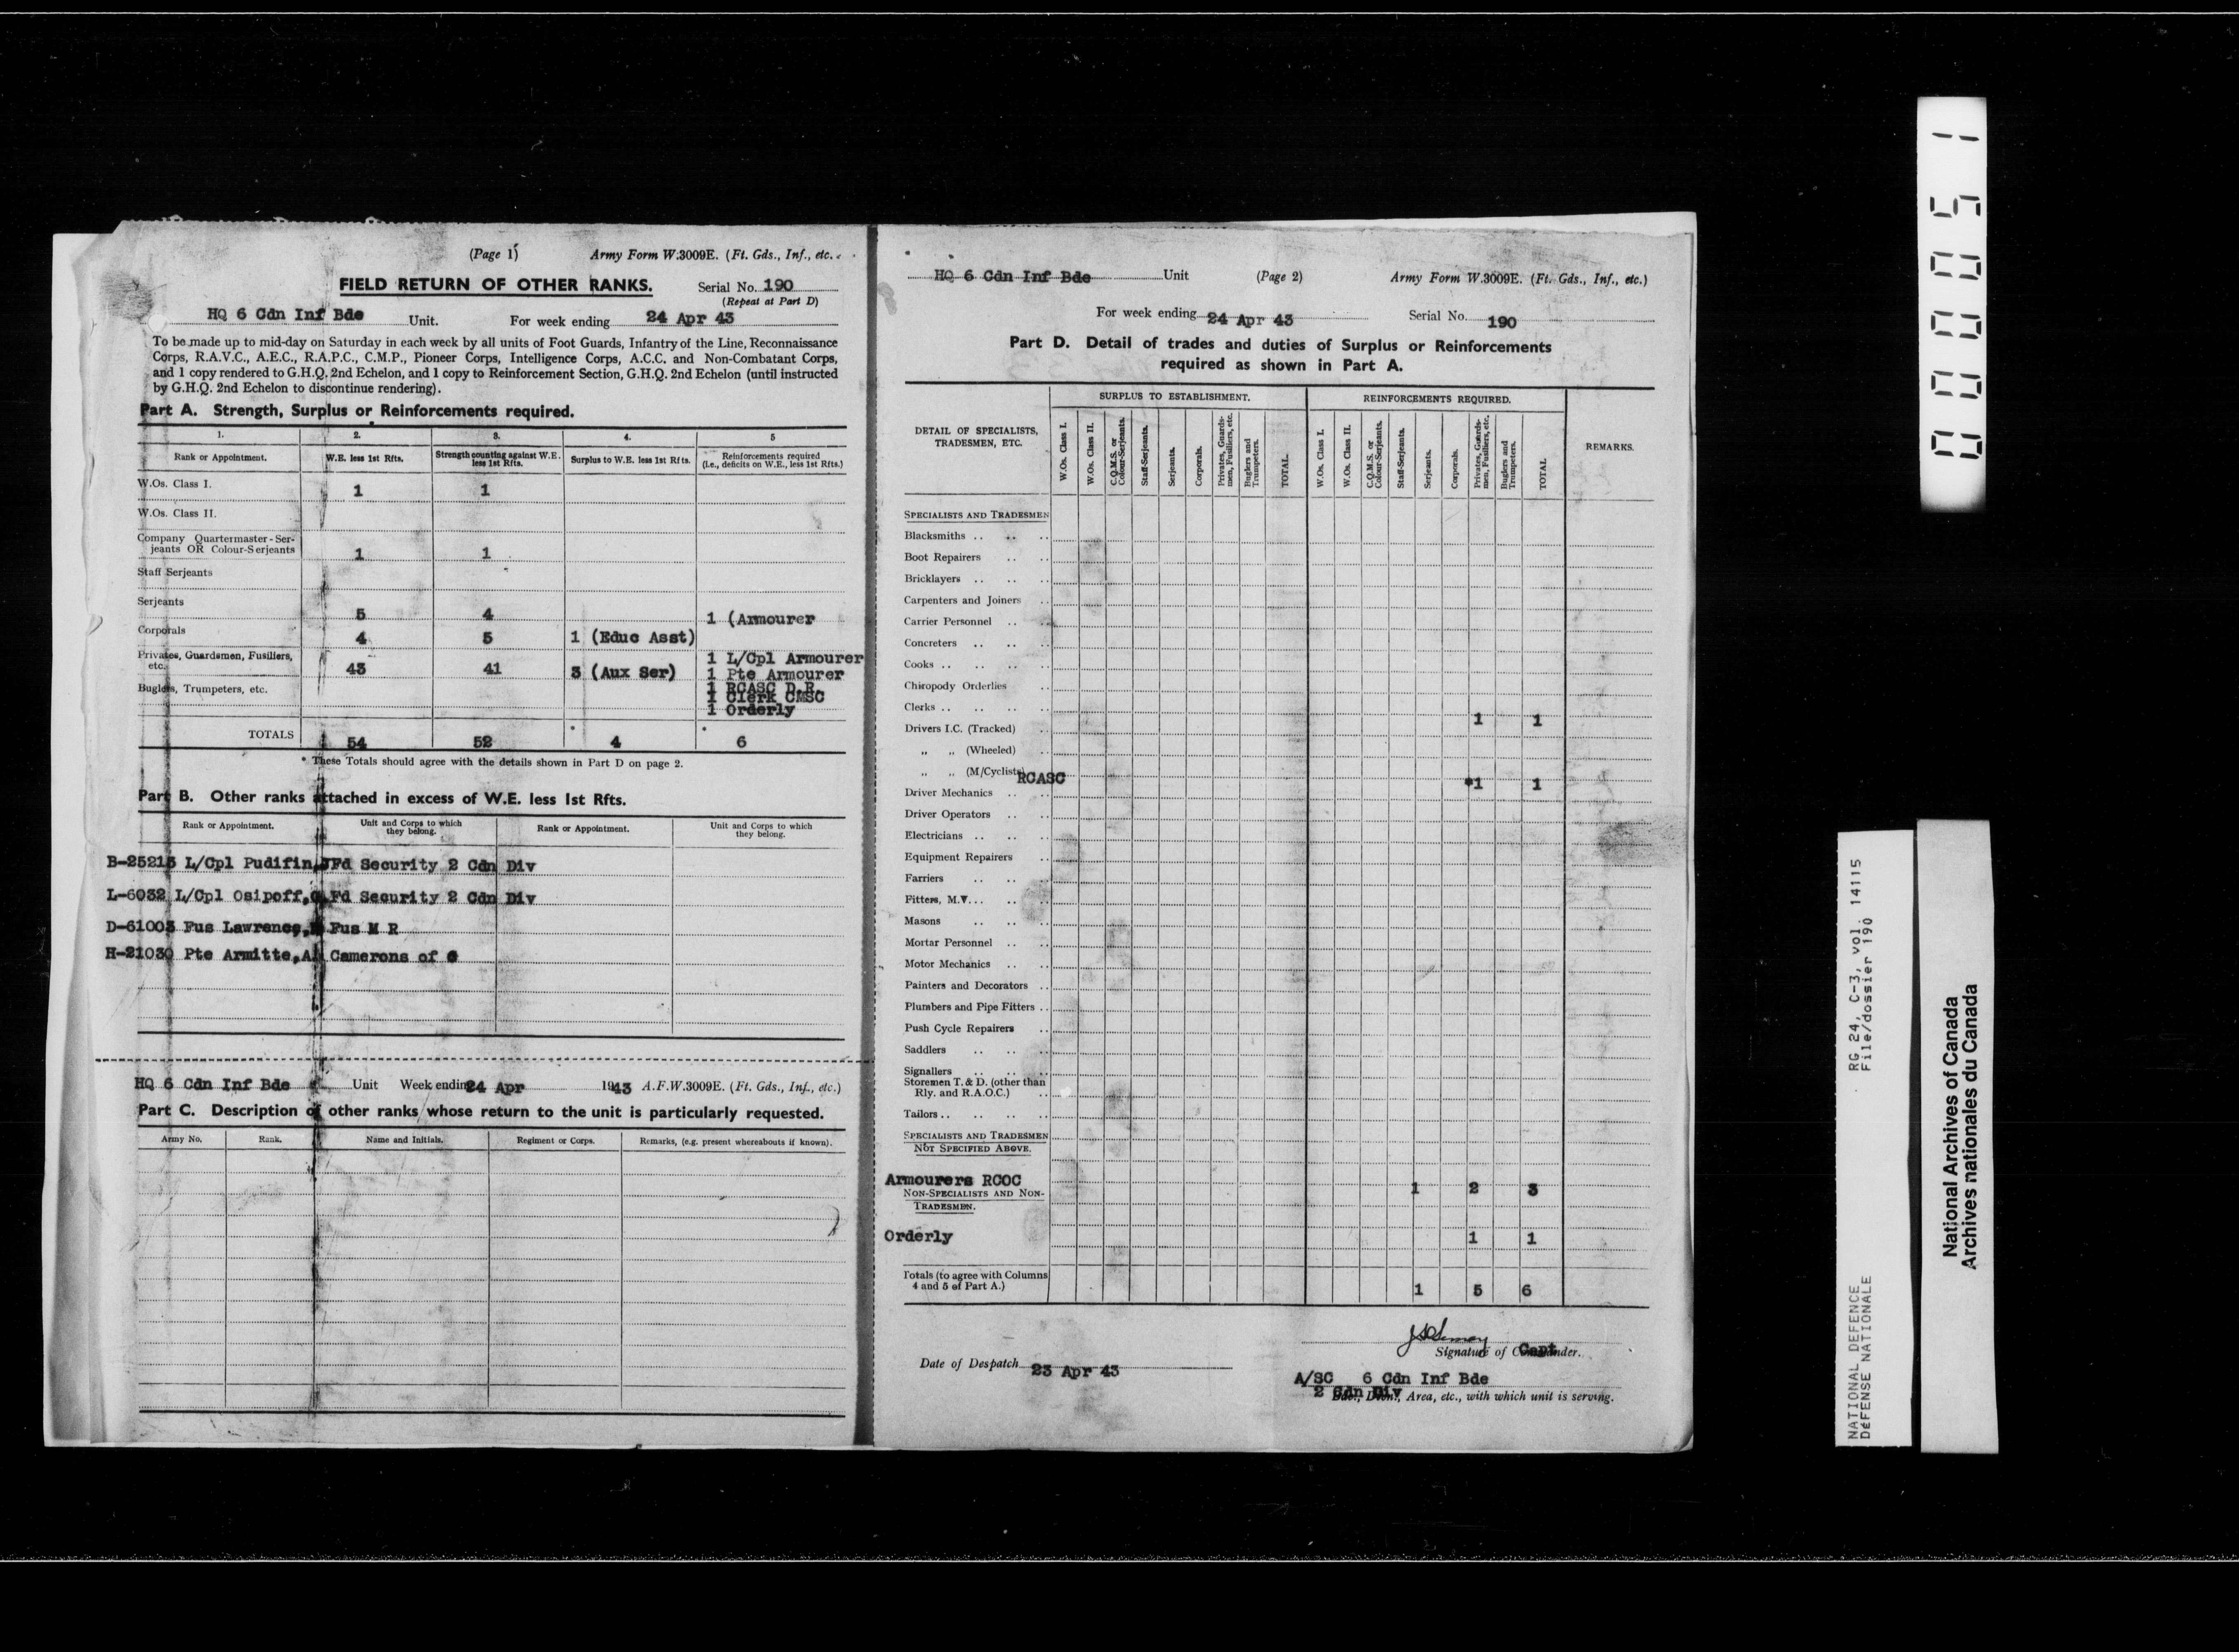 (Page 1) Army Form W.3009E. (Ft. Gds., Inf., etc.
FIELD RETURN OF OTHER RANKS. Serial No. 190
(Repeat at Part D)
HQ 6 Cdn Inf Bde Unit. For week ending 24 Apr 43
To be made up to mid-day on Saturday in each week by all units of Foot Guards, Infantry of the Line, Reconnaissance
Corps, R.A.V.C., A.E.C., R.A.P.C., C.M.P., Pioneer Corps, Intelligence Corps, A.C.C. and Non-Combatant Corps,
and 1 copy rendered to G.H.Q. 2nd Echelon, and 1 copy to Reinforcement Section, G.H.Q. 2nd Echelon (until instructed
by G.H.Q. 2nd Echelon to discontinue rendering).
Part A. Strength, Surplus or Reinforcements required.
1. 2. 3. 4. 5
Rank or Appointment. W.E. less 1st Rfts. Strength counting against W.E. less 1st Rfts. Surplus to W.E. less 1st Rfts. Reinforcements required (i.e., deficits on W.E., less 1st Rfts.)
W.Os. Class I. 1 1
W.Os. Class II.
Company Quartermaster-Ser-
jeants OR Colour-Serjeants 1 1
Staff Serjeants
Serjeants 5 4 1 (Armourer
Corporals 4 5 1 (Educ Asst)
Privates, Guardsmen, Fusiliers, 1 L/Cpl Armourer
etc. 43 41 3 (Aux Ser) 1 Pte Armourer
Buglers, Trumpeters, etc. 1 RCASC D.R.
1 Clerk CMSC
1 Orderly
TOTALS 54 52 * 4 * 6
* These Totals should agree with the details shown in Part D on page 2.
Part B. Other ranks attached in excess of W.E. less 1st Rfts.
Rank or Appointment. Unit and Corps to which they belong. Rank or Appointment. Unit and Corps to which they belong.
B-25213 L/Cpl Pudifin,J Fd Security 2 Cdn Div
L-6032 L/Cpl Osipoff, Fd Security 2 Cdn Div
D-61003 Fus Lawrence, Fus M R
H-21030 Pte Armitte,A Camerons of C
HQ 6 Cdn Inf Bde Unit Week ending 24 Apr 1943 A.F.W.3009E. (Ft. Gds., Inf., etc.)
Part C. Description of other ranks whose return to the unit is particularly requested.
Army No. Rank. Name and Initials. Regiment or Corps. Remarks, (e.g. present whereabouts if known).
HQ 6 Cdn Inf Bde Unit (Page 2) Army Form W.3009E. (Ft. Gds., Inf., etc.)
For week ending 24 Apr 43 Serial No. 190
Part D. Detail of trades and duties of Surplus or Reinforcements
required as shown in Part A.
DETAIL OF SPECIALISTS, TRADESMEN, ETC. SURPLUS TO ESTABLISHMENT. REINFORCEMENTS REQUIRED. REMARKS.
W.Os. Class I. W.Os. Class II. C.Q.M.S. or Colour-Serjeants. Staff-Serjeants. Serjeants. Corporals. Privates, Guardsmen, Fusiliers, etc. Buglers and Trumpeters. TOTAL.
W.Os. Class I. W.Os. Class II. C.Q.M.S. or Colour-Serjeants. Staff-Serjeants. Serjeants. Corporals. Privates, Guardsmen, Fusiliers, etc. Buglers and Trumpeters. TOTAL
SPECIALISTS AND TRADESMEN
Blacksmiths ..
Boot Repairers
Bricklayers ..
Carpenters and Joiners
Carrier Personnel ..
Concreters ..
Cooks ..
Chiropody Orderlies
Clerks .. 1 1
Drivers I.C. (Tracked)
,, ,, (Wheeled)
,, ,, (M/Cyclists) RCASC *1 1
Driver Mechanics ..
Driver Operators ..
Electricians ..
Equipment Repairers
Farriers ..
Fitters, M.V...
Masons ..
Mortar Personnel ..
Motor Mechanics ..
Painters and Decorators ..
Plumbers and Pipe Fitters ..
Push Cycle Repairers
Saddlers ..
Signallers ..
Storemen T. & D. (other than
Rly. and R.A.O.C.)
Tailors ..
SPECIALISTS AND TRADESMEN
NOT SPECIFIED ABOVE.
Armourers RCOC 1 2 3
NON-SPECIALISTS AND NON-
TRADESMEN.
Orderly 1 1
Totals (to agree with Columns
4 and 5 of Part A.) 1 5 6
Signature of Commander. Capt
Date of Despatch 23 Apr 43
A/SC 6 Cdn Inf Bde
2 Cdn Div
Bde., Divn., Area, etc., with which unit is serving.
000051
NATIONAL DEFENCE RG 24, C-3, vol. 14115
DÉFENSE NATIONALE File/dossier 190
National Archives of Canada
Archives nationales du Canada